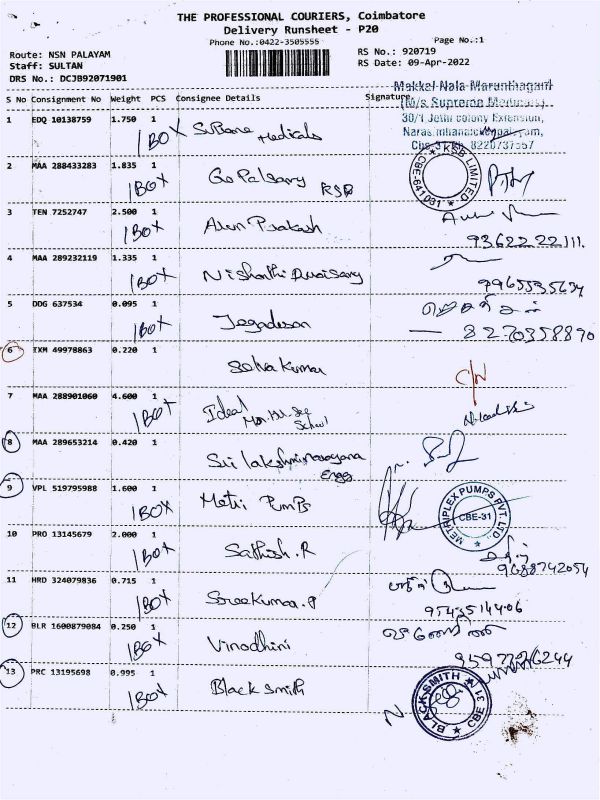 THE PROFESSIONAL COURIERS, Coimbatore
Delivery Runsheet - P20
Phone No.:0422-3505555
Page No.:1
Route: NSN PALAYAM
Staff: SULTAN
DRS No.: DCJB92071901
RS No.: 920719
RS Date: 09-Apr-2022
S No Consignment No Weight PCS Consignee Details Signature
Makkal Nala Marunthagam
(M/s Supreme Medicals)
30/1 Jethi colony Extension,
8220737567
1 EDQ 10138759 1.750 1
1 BOX Medicals
2 MAA 288433283 1.835 1
1 BOX Gopalsamy KSB
KSB LIMITED
CBE-641031
3 TEN 7252747 2.500 1
1 BOX Arun Prakash
93622 22111.
4 MAA 289232119 1.335 1
1 BOX Nishanthi Duraisamy
9965535634
5 DDG 637534 0.095 1
1 BOX Jegadesan
ஜெகதீசன்
8270358890
6 IXM 49978863 0.220 1
Selva Kumar
C/N
7 MAA 288901060 4.600 1
1 BOX Ideal Mat. Hr. Sec School
8 MAA 289653214 0.420 1
Sri lakshminarayana Engg
9 VPL 519795988 1.600 1
1 BOX Metri Pumps
METRIPLEX PUMPS PVT. LTD.
CBE-31
10 PRO 13145679 2.000 1
1 BOX Sathish.R
9688742054
11 HRD 324079836 0.715 1
1 BOX Sreekumar.P
9543514406
12 BLR 1600879084 0.250 1
1 BOX Vinodhini
13 PRC 13195698 0.995 1
1 BOX Black Smith
BLACK SMITH
CBE 31